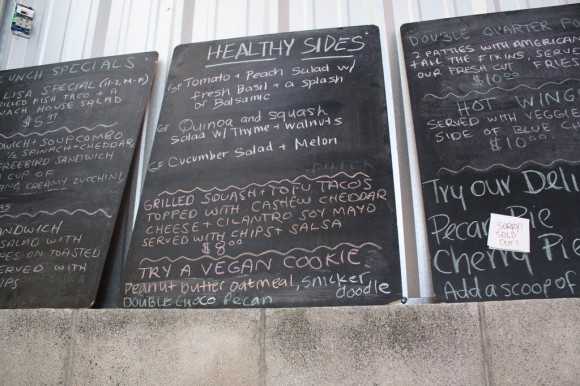 UNCH SPECIALS
LISA SPECIAL (11-2, M-F)
FISH TACO + A
HOUSE SALAD
$5.95
DWICH + SOUP COMBO
1/2 SPINACH + CHEDDAR
FREEBIRD SANDWICH
CUP OF
CREAMY ZUCCHINI
ANDWICH
SALAD WITH
ON TOASTED
ERVED WITH
IPS
HEALTHY SIDES
GF Tomato + Peach Salad w/
Fresh Basil + a splash
of Balsamic
GF Quinoa and squash
Salad w/ Thyme + Walnuts
GF Cucumber Salad + Melon
GRILLED SQUASH + TOFU TACOS
TOPPED WITH CASHEW CHEDDAR
CHEESE + CILANTRO SOY MAYO
SERVED WITH CHIPS + SALSA
$8.00
TRY A VEGAN COOKIE
Peanut butter oatmeal, Snicker
doodle
DOUBLE CHOCO PECAN
DOUBLE QUARTER PO
2 PATTIES WITH AMERICAN
+ ALL THE FIXINS, SERVED
OUR FRESH FRIES
$10.00
HOT WING
SERVED WITH VEGGIE
SIDE OF BLUE C
$10.00
Try our Deli
Pecan Pie
SORRY!
SOLD
OUT!
Cherry Pie
Add a scoop of